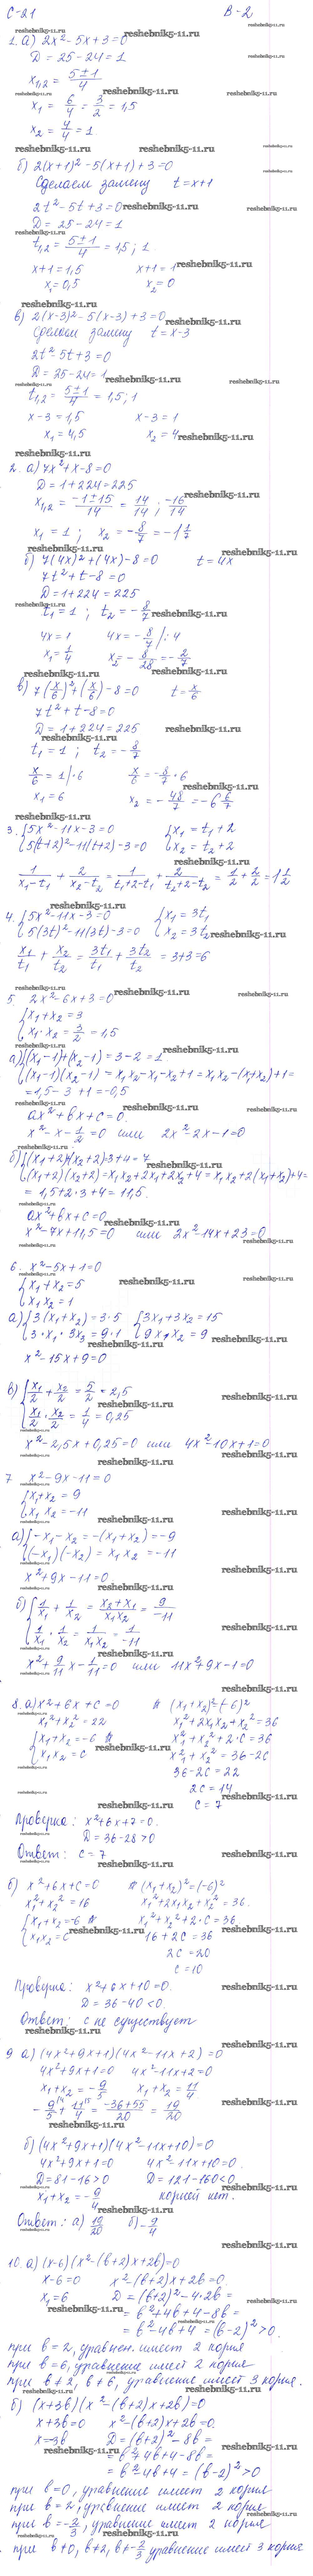 С-21 В-2
1. а) 2x² - 5x + 3 = 0
D = 25 - 24 = 1
x₁,₂ = (5 ± 1)/4
x₁ = 6/4 = 3/2 = 1,5
x₂ = 4/4 = 1
б) 2(x+1)² - 5(x+1) + 3 = 0
Сделаем замену t = x+1
2t² - 5t + 3 = 0
D = 25 - 24 = 1
t₁,₂ = (5 ± 1)/4 = 1,5; 1
x+1 = 1,5 x+1 = 1
x₁ = 0,5 x₂ = 0
в) 2(x-3)² - 5(x-3) + 3 = 0
Сделаем замену t = x-3
2t² - 5t + 3 = 0
D = 25 - 24 = 1
t₁,₂ = (5 ± 1)/4 = 1,5; 1
x-3 = 1,5 x-3 = 1
x₁ = 4,5 x₂ = 4
2. а) 7x² + x - 8 = 0
D = 1 + 224 = 225
x₁,₂ = (-1 ± 15)/14 = 14/14; -16/14
x₁ = 1; x₂ = -8/7 = -1 1/7
б) 7(4x)² + (4x) - 8 = 0 t = 4x
7t² + t - 8 = 0
D = 1 + 224 = 225
t₁ = 1; t₂ = -8/7
4x = 1 4x = -8/7 |: 4
x₁ = 1/4 x₂ = -8/28 = -2/7
в) 7(x/6)² + (x/6) - 8 = 0 t = x/6
7t² + t - 8 = 0
D = 1 + 224 = 225
t₁ = 1; t₂ = -8/7
x/6 = 1 | · 6 x/6 = -8/7 · 6
x₁ = 6 x₂ = -48/7 = -6 6/7
3. { 5x² - 11x - 3 = 0 { x₁ = t₁ + 2
5(t+2)² - 11(t+2) - 3 = 0 x₂ = t₂ + 2
1/(x₁-t₁) + 2/(x₂-t₂) = 1/(t₁+2-t₁) + 2/(t₂+2-t₂) = 1/2 + 2/2 = 1 1/2
4. { 5x² - 11x - 3 = 0 { x₁ = 3t₁
5(3t)² - 11(3t) - 3 = 0 x₂ = 3t₂
x₁/t₁ + x₂/t₂ = 3t₁/t₁ + 3t₂/t₂ = 3+3 = 6
5. 2x² - 6x + 3 = 0
{ x₁ + x₂ = 3
x₁ · x₂ = 3/2 = 1,5
а) { (x₁-1) + (x₂-1) = 3 - 2 = 1
(x₁-1)(x₂-1) = x₁x₂ - x₁ - x₂ + 1 = x₁x₂ - (x₁+x₂) + 1 =
= 1,5 - 3 + 1 = -0,5
ax² + bx + c = 0
x² - x - 1/2 = 0 или 2x² - 2x - 1 = 0
б) { (x₁+2)+(x₂+2) = 3+4 = 7
(x₁+2)(x₂+2) = x₁x₂ + 2x₁ + 2x₂ + 4 = x₁x₂ + 2(x₁+x₂) + 4 =
= 1,5 + 2·3 + 4 = 11,5.
ax² + bx + c = 0
x² - 7x + 11,5 = 0 или 2x² - 14x + 23 = 0
6. x² - 5x + 1 = 0
{ x₁ + x₂ = 5
x₁x₂ = 1
а) { 3(x₁+x₂) = 3·5 { 3x₁ + 3x₂ = 15
3·x₁ · 3x₂ = 9·1 9x₁x₂ = 9
x² - 15x + 9 = 0
в) { x₁/2 + x₂/2 = 5/2 = 2,5
x₁/2 · x₂/2 = 1/4 = 0,25
x² - 2,5x + 0,25 = 0 или 4x² - 10x + 1 = 0
7 x² - 9x - 11 = 0
{ x₁ + x₂ = 9
x₁x₂ = -11
а) { -x₁ - x₂ = -(x₁+x₂) = -9
(-x₁)(-x₂) = x₁x₂ = -11
x² + 9x - 11 = 0
б) { 1/x₁ + 1/x₂ = (x₂+x₁)/(x₁x₂) = 9/-11
1/x₁ · 1/x₂ = 1/(x₁x₂) = 1/-11
x² + 9/11 x - 1/11 = 0 или 11x² + 9x - 1 = 0
8. а) x² + 6x + c = 0 (x₁+x₂)² = (-6)²
x₁² + x₂² = 22 x₁² + 2x₁x₂ + x₂² = 36
{ x₁ + x₂ = -6 x₁² + x₂² + 2·c = 36
x₁x₂ = c x₁² + x₂² = 36 - 2c
36 - 2c = 22
2c = 14
c = 7
Проверка: x² + 6x + 7 = 0.
D = 36 - 28 > 0
Ответ: c = 7
б) x² + 6x + c = 0 (x₁+x₂)² = (-6)²
x₁² + x₂² = 16 x₁² + 2x₁x₂ + x₂² = 36.
{ x₁ + x₂ = -6 x₁² + x₂² + 2·c = 36
x₁x₂ = c 16 + 2c = 36
2c = 20
c = 10
Проверка: x² + 6x + 10 = 0.
D = 36 - 40 < 0.
Ответ: c не существует
9 а) (4x² + 9x + 1)(4x² - 11x + 2) = 0
4x² + 9x + 1 = 0 4x² - 11x + 2 = 0
x₁ + x₂ = -9/5 x₁ + x₂ = 11/4
-9/5 + 11/4 = (-36+55)/20 = 19/20
б) (4x² + 9x + 1)(4x² - 11x + 10) = 0
4x² + 9x + 1 = 0 4x² - 11x + 10 = 0.
D = 81 - 16 > 0 D = 121 - 160 < 0
x₁ + x₂ = -9/4 корней нет.
Ответ: а) 19/20 б) -9/4
10. а) (x-6)(x² - (b+2)x + 2b) = 0
x - 6 = 0 x² - (b+2)x + 2b = 0.
x₁ = 6 D = (b+2)² - 4·2b =
= b² + 4b + 4 - 8b =
= b² - 4b + 4 = (b-2)² > 0.
при b = 2, уравнен. имеет 2 корня
при b = 6, уравнение имеет 2 корня
при b ≠ 2, b ≠ 6, уравнение имеет 3 корня.
б) (x+3b)(x² - (b+2)x + 2b) = 0
x + 3b = 0 x² - (b+2)x + 2b = 0.
x = -3b D = (b+2)² - 8b =
= b² + 4b + 4 - 8b =
= b² - 4b + 4 = (b-2)² > 0
при b = 0, уравнение имеет 2 корня
при b = 2, уравнение имеет 2 корня
при b = -2/3, уравнение имеет 2 корня
при b ≠ 0, b ≠ 2, b ≠ -2/3 уравнение имеет 3 корня
reshebnik5-11.ru